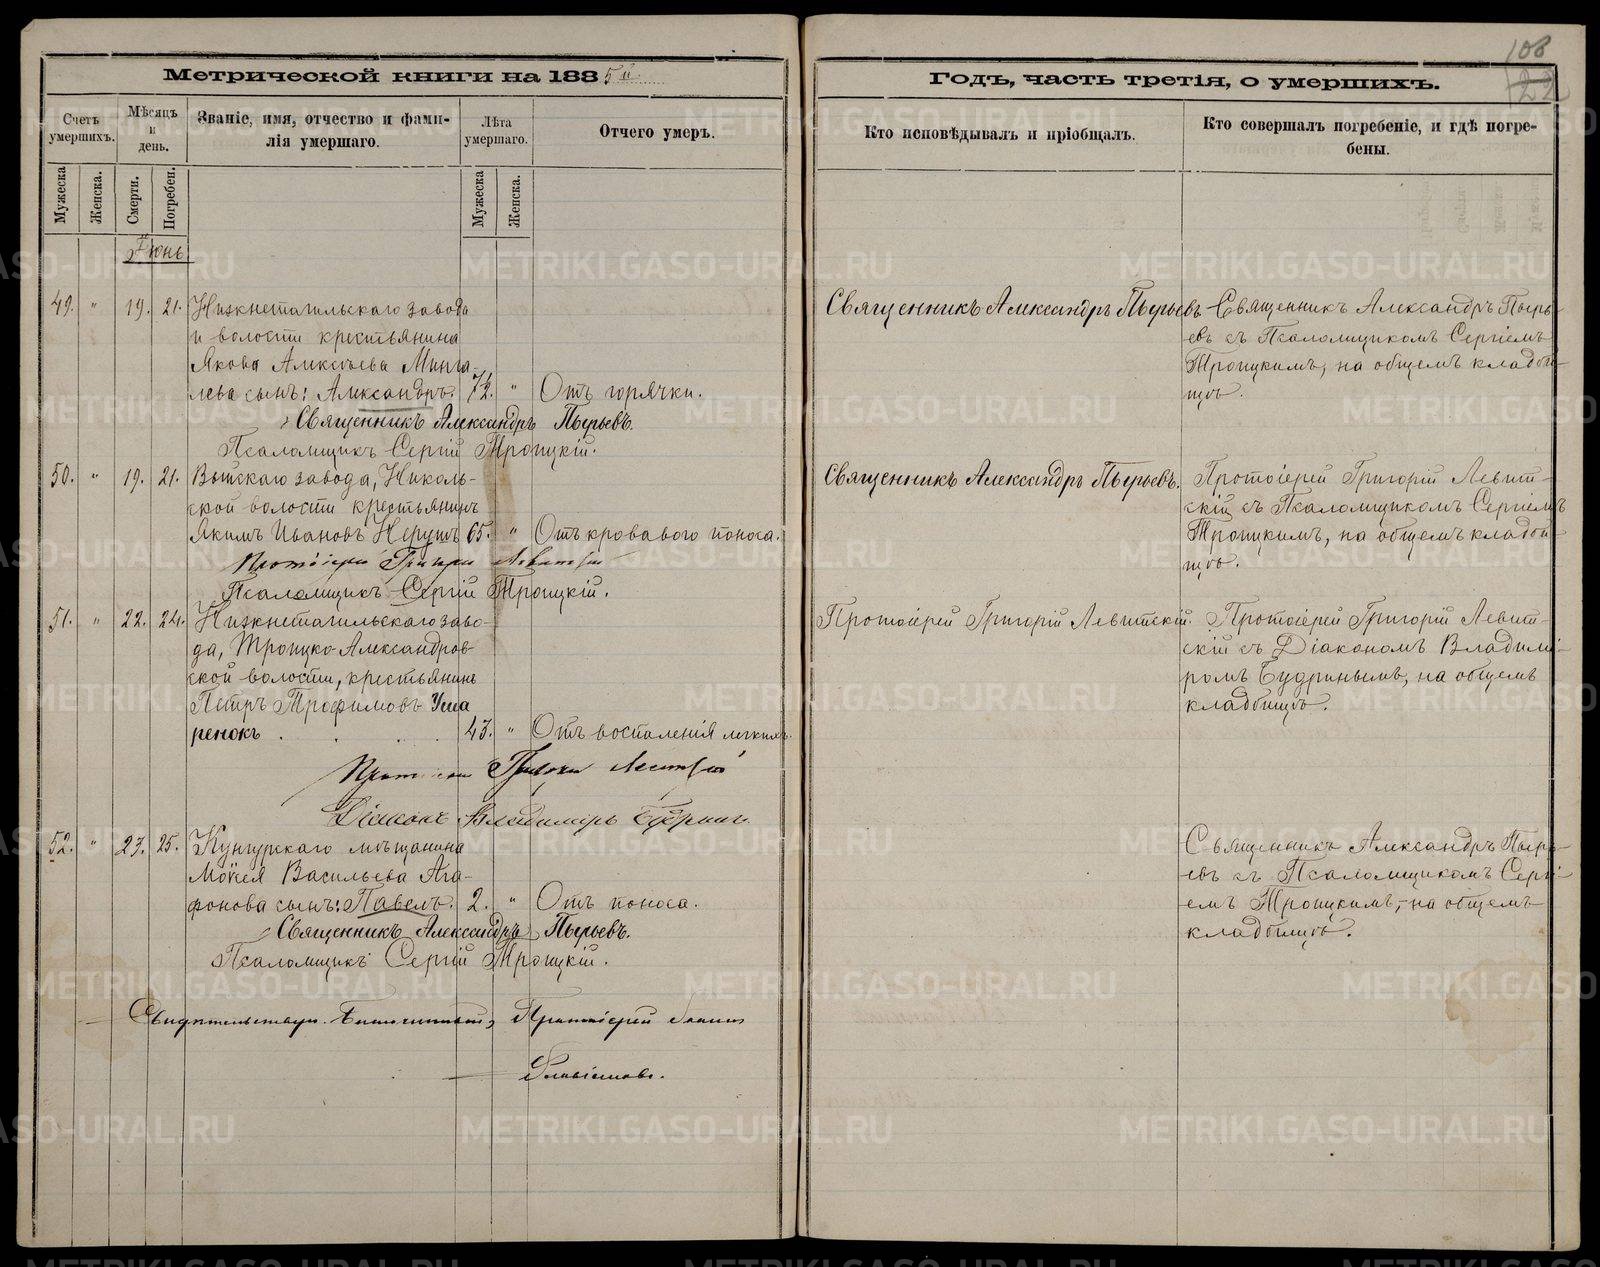 108
22
Метрической книги на 1885й
Годъ, часть третія, о умершихъ.
Счетъ умершихъ.
Мѣсяцъ и день.
Званіе, имя, отчество и фами-
лія умершаго.
Лѣта умершаго.
Отчего умеръ.
Кто исповѣдывалъ и пріобщалъ.
Кто совершалъ погребеніе, и гдѣ погре-
бены.
Мужеска
Женска.
Смерти.
Погребен.
Мужеска
Женска.
Іюнь
49. " 19. 21. Нижнетагильскаго завода
и волости крестьянина
Якова Алексѣева Минга-
лева сынъ: Александръ. 72. " Отъ горячки.
Священникъ Александръ Пырьевъ.
Псаломщикъ Сергій Троицкій.
Священникъ Александръ Пырьевъ
Священникъ Александръ Пырь-
евъ съ Псаломщикомъ Сергіемъ
Троицкимъ, на общемъ кладби-
щѣ.
50. " 19. 21. Выйскаго завода, Николь-
ской волости крестьянинъ
Якимъ Ивановъ 65. " Отъ кроваваго поноса.
Протоіерей Григорій Левитскій
Псаломщикъ Сергій Троицкій.
Священникъ Александръ Пырьевъ.
Протоіерей Григорій Левит-
скій съ Псаломщикомъ Сергіемъ
Троицкимъ, на общемъ кладби-
щѣ.
51. " 22. 24. Нижнетагильскаго заво-
да, Троицко-Александров-
ской волости, крестьянинъ
Петръ Трофимовъ Уша
ренокъ . . . . 43. " Отъ воспаленія легкихъ.
Протоіерей Григорій Левитскій
Діаконъ Владимиръ Будринъ.
Протоіерей Григорій Левитскій.
Протоіерей Григорій Левит-
скій съ Діакономъ Владими-
ромъ Будринымъ, на общемъ
кладбищѣ.
52. " 23. 25. Кунгурскаго мѣщанина
Моѵсея Васильева Ага-
фонова сынъ: Павелъ. 2. " Отъ поноса.
Священникъ Александръ Пырьевъ.
Псаломщикъ Сергій Троицкій.
Священникъ Александръ Пырь-
евъ съ Псаломщикомъ Сергі-
емъ Троицкимъ, на общемъ
кладбищѣ.
Свидѣтельствуя. Благочинный, Протоіерей
METRIKI.GASO-URAL.RU